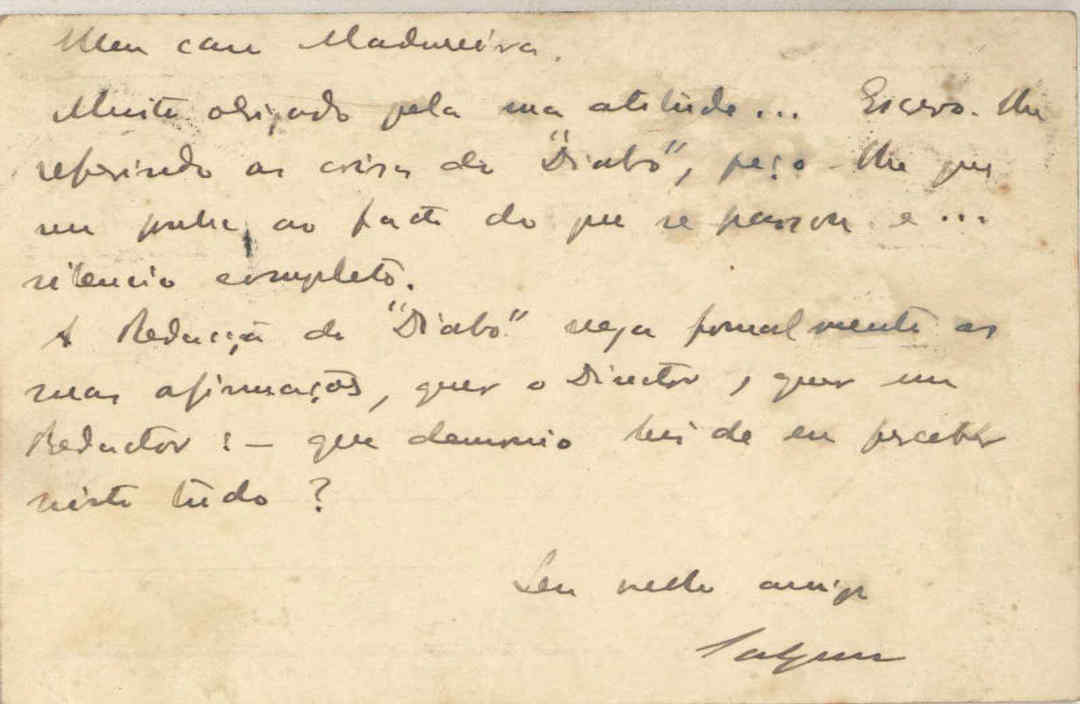 Meu caro Madureira.
Muito obrigado pela sua atitude... Escrevo-lhe
referindo as coisas do "Diabo", peço-lhe que
me ponha ao facto do que se passou e...
silencio completo.
A Redacção do "Diabo" nega formalmente as
suas afirmações, quer o Director, quer um
Redactor: – que demonio hei de eu perceber
nisto tudo?
Seu velho amigo